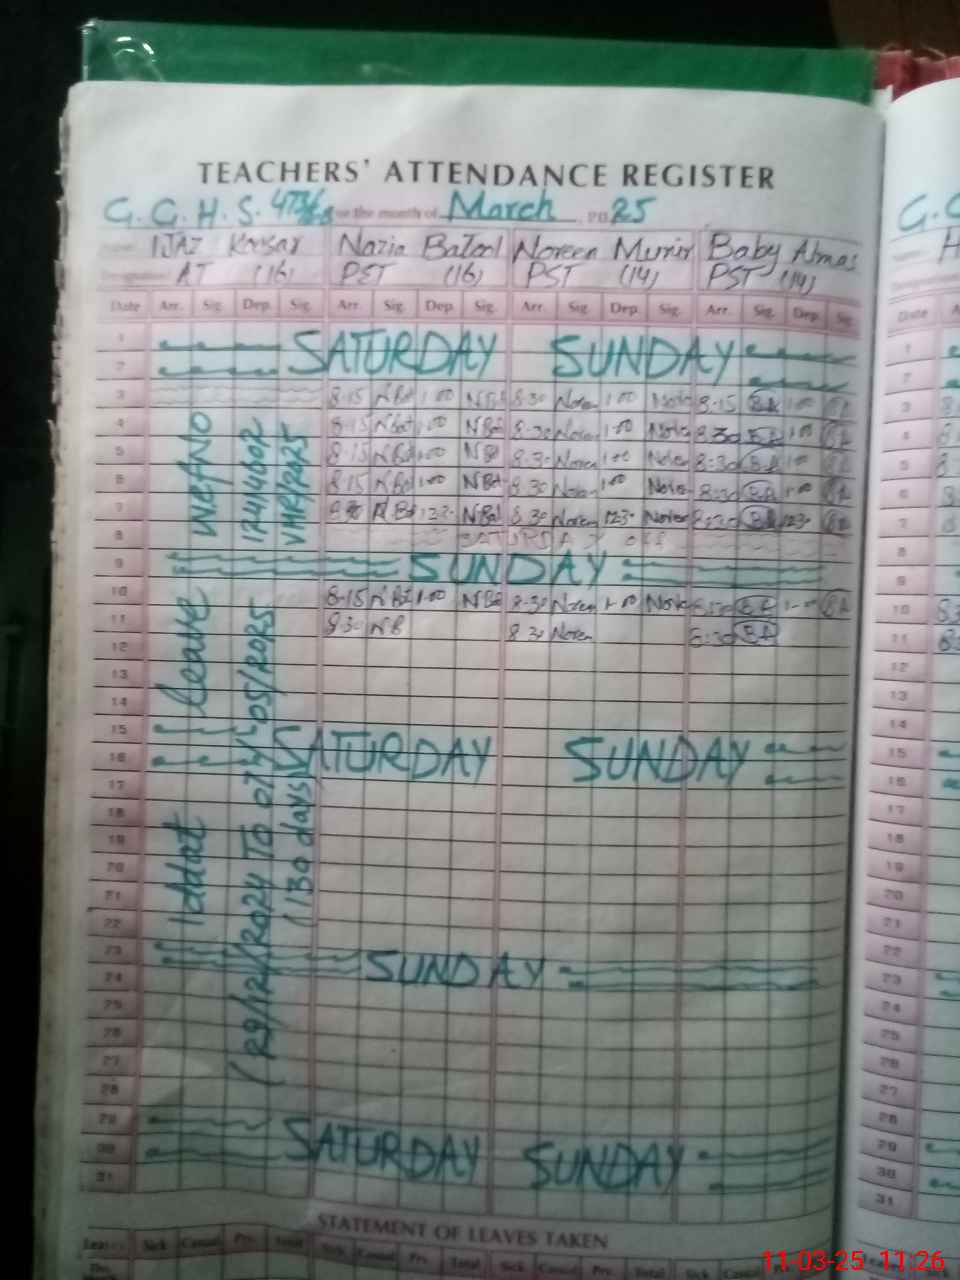 TEACHERS' ATTENDANCE REGISTER
G. G. H. S. for the month of March 25
Kousar Nazia Batool Noreen Munir Baby Almas
AT (16) PST (16) PST (14) PST (14)
Date Arr. Sig. Dep. Sig. Arr. Sig. Dep. Sig. Arr. Sig. Dep. Sig. Arr. Sig. Dep. Sig. Date
1 SATURDAY SUNDAY 1
2 2
3 8-15 1-00 8-30 Noren 1-00 8-15 BA 1-00 BA 3
4 8-15 1-00 8-30 Noren 1-00 8:30 BA 1-00 BA 4
5 8-15 1-00 8-30 Noren 1-00 8:30 BA 1-00 BA 5
6 8-15 1-00 8-30 Noren 1-00 8:30 BA 1-00 BA 6
7 8-30 Noren 1230 8:30 BA 1230 BA 7
8 SATURDAY off 8
9 SUNDAY 9
10 8-15 1-00 8-30 Noren 1-00 8:30 BA 1-00 BA 10
11 8-30 NB 8-30 Noren 8:30 BA 11
12 12
13 13
14 14
15 SATURDAY SUNDAY 15
16 16
17 17
18 18
19 19
20 20
21 21
22 22
23 SUNDAY 23
24 24
25 25
26 26
27 27
28 28
29 SATURDAY SUNDAY 29
30 30
31 31
Iddat leave
(29/12/2024 TO 07/05/2025
(130 days)
STATEMENT OF LEAVES TAKEN
Leaves Sick Casual Prv. Total Sick Casual Prv. Total Sick Casual Prv. Total Sick Casual
11-03-25 11:26